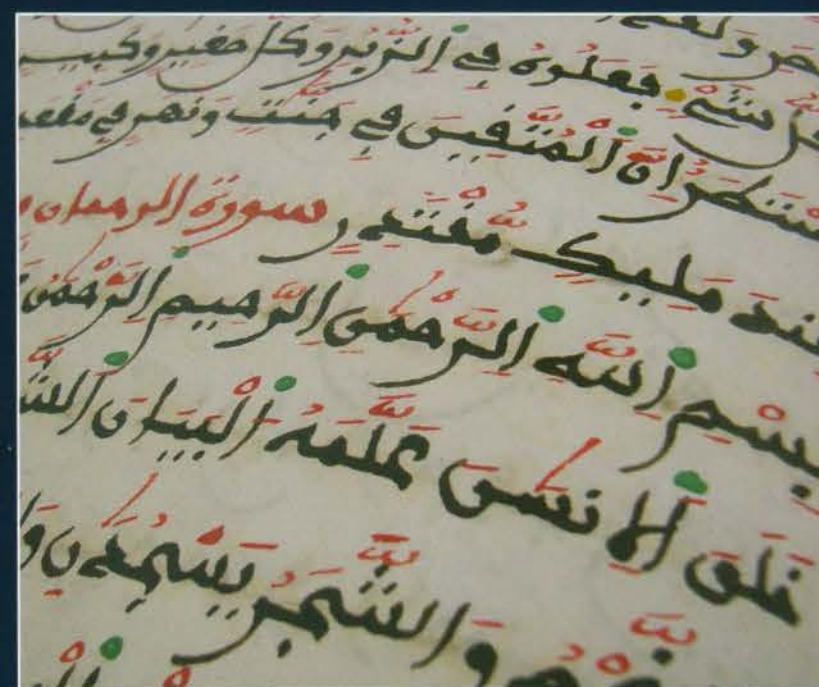 شَےْءٍ فَعَلُوهُ فِے اِ۬لزُّبُرِ وَكُلُّ صَغِيرٖ وَكَبِيرٖ
مُّسْتَطَرٌ اِنَّ اَ۬لْمُتَّقِينَ فِے جَنَّٰتٖ وَنَهَرٖ فِے مَقْعَدِ
عِندَ مَلِيكٖ مُّقْتَدِرٖ سورة الرحمان
بِسْمِ اِ۬للَّهِ اِ۬لرَّحْمَٰنِ اِ۬لرَّحِيمِ اِ۬لرَّحْمَٰنُ
خَلَقَ اَ۬لِانسَٰنَ عَلَّمَهُ اُ۬لْبَيَانَ
وَالشَّجَرُ يَسْجُدَٰنِ